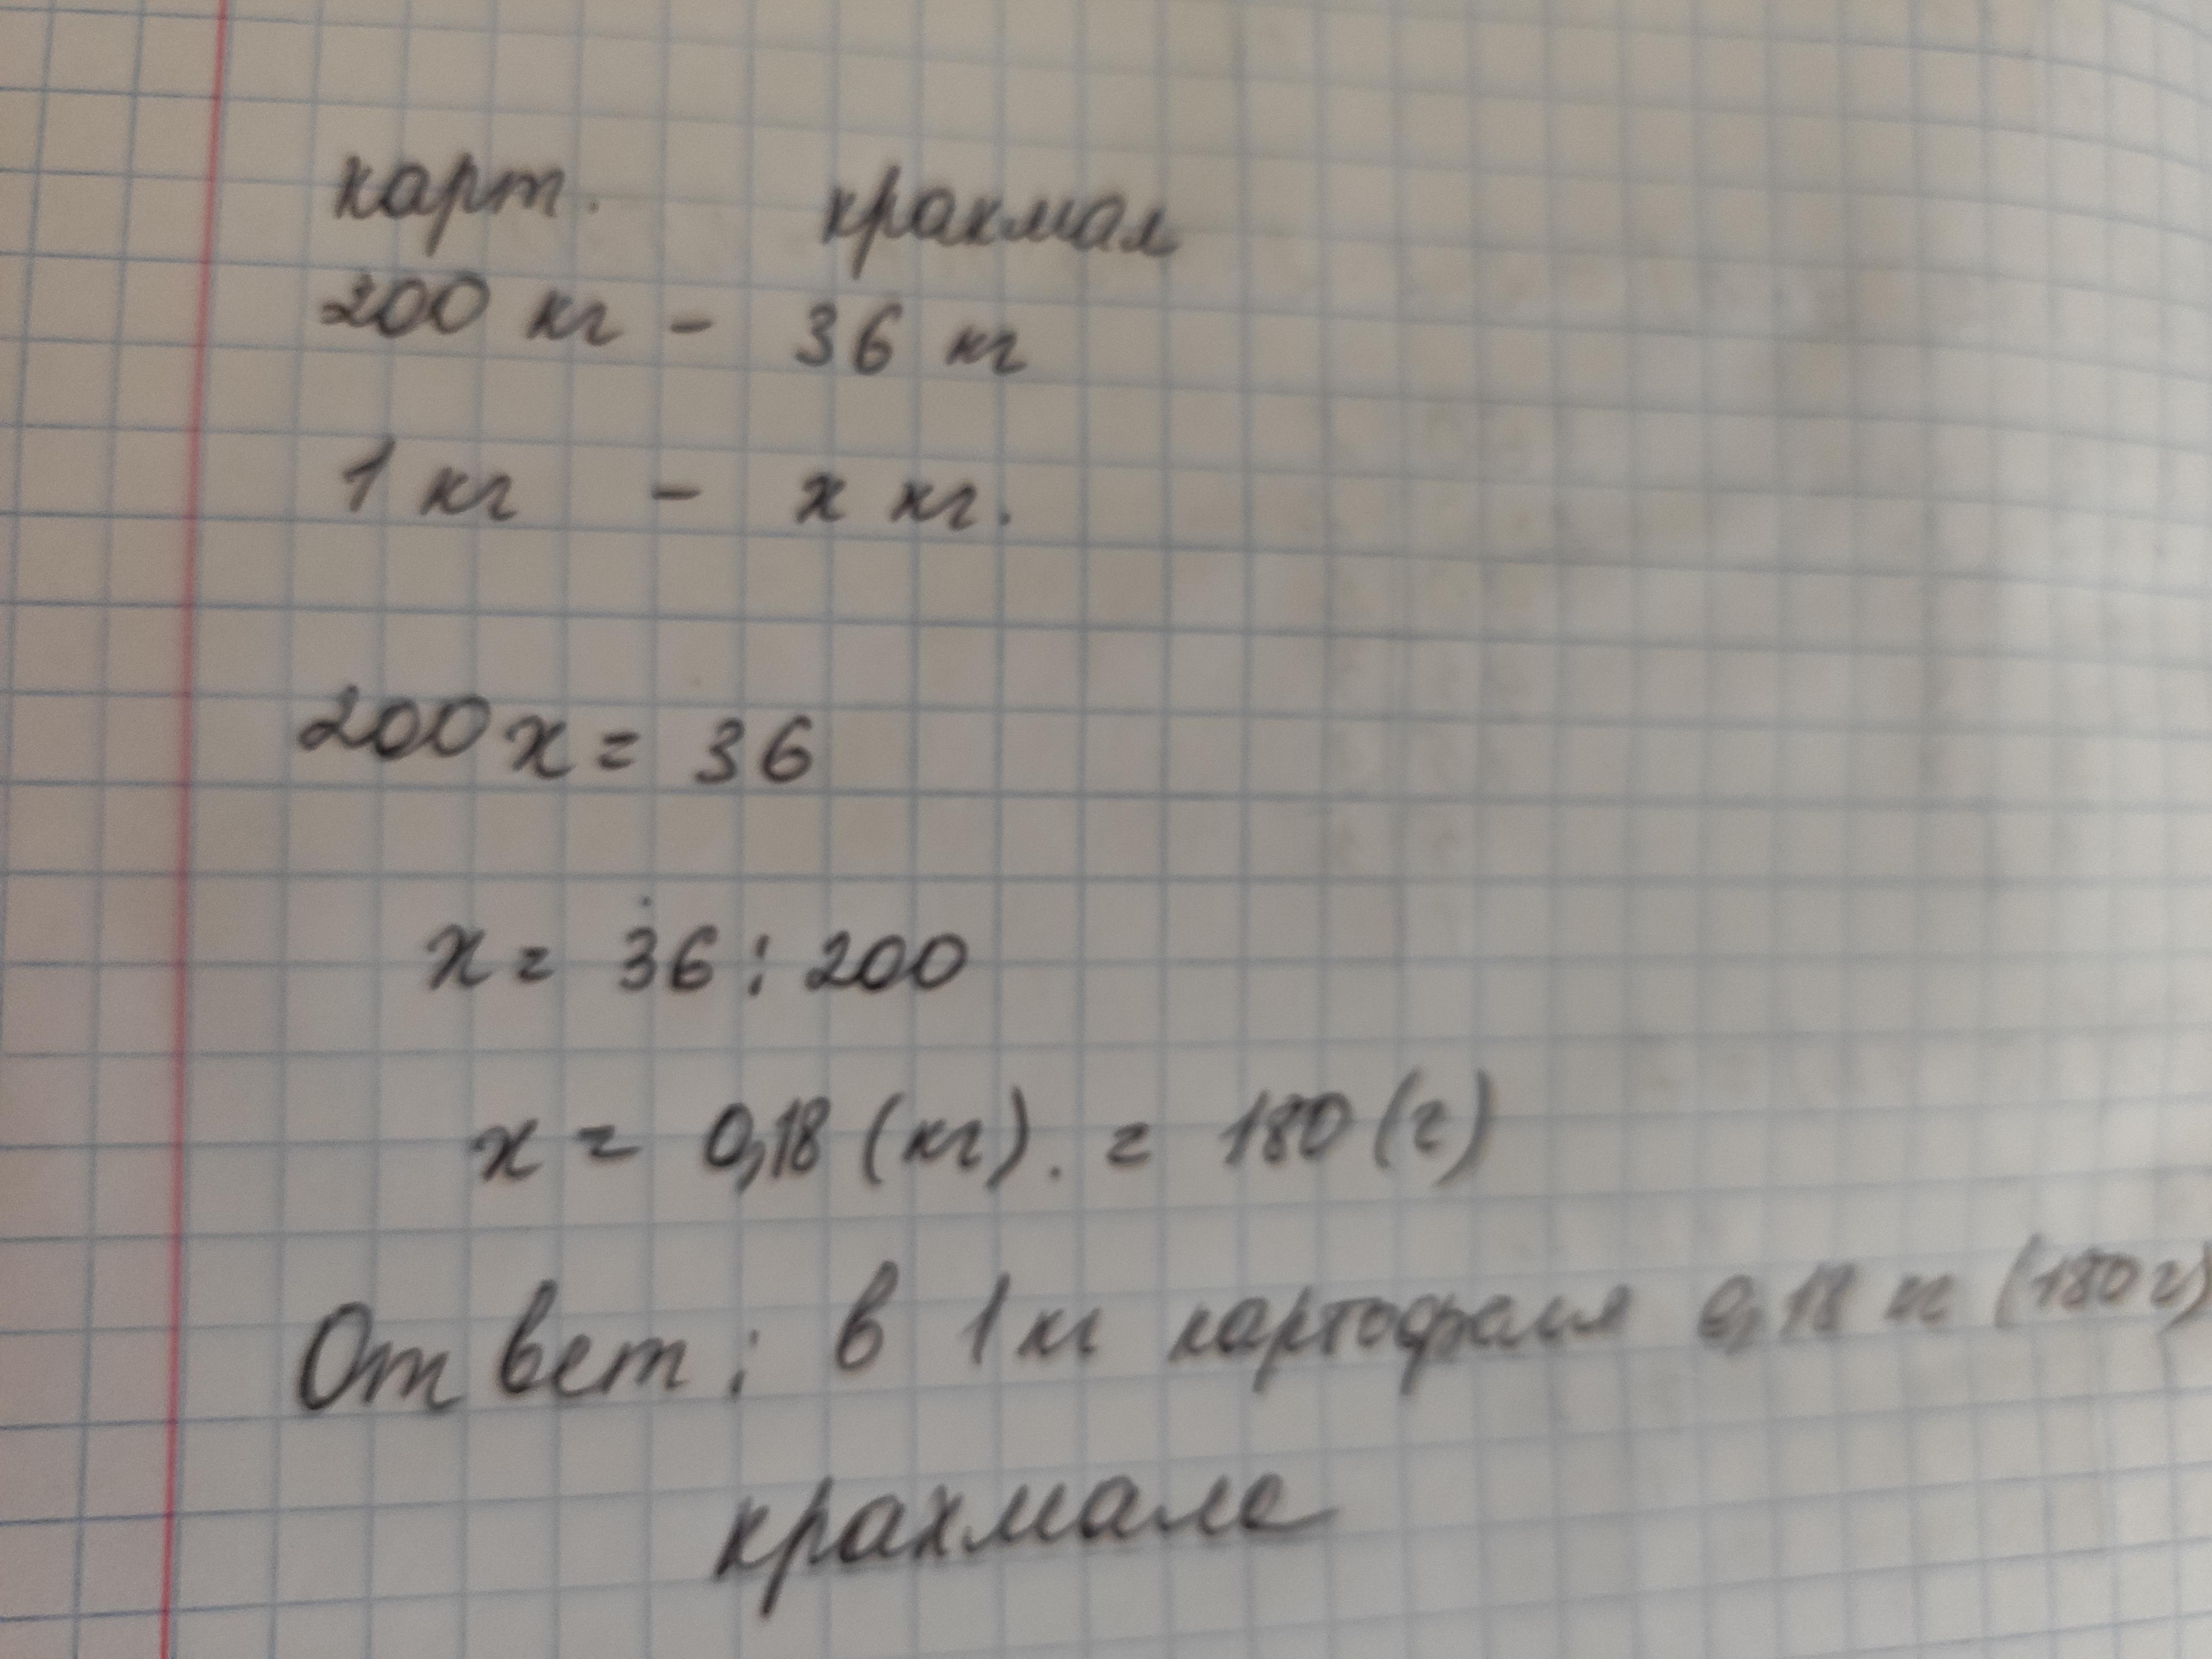 карт. крахмал
200 кг - 36 кг
1 кг - х кг.
200х = 36
х = 36 : 200
х = 0,18 (кг). = 180 (г)
Ответ: в 1 кг картофеля 0,18 кг (180 г)
крахмала